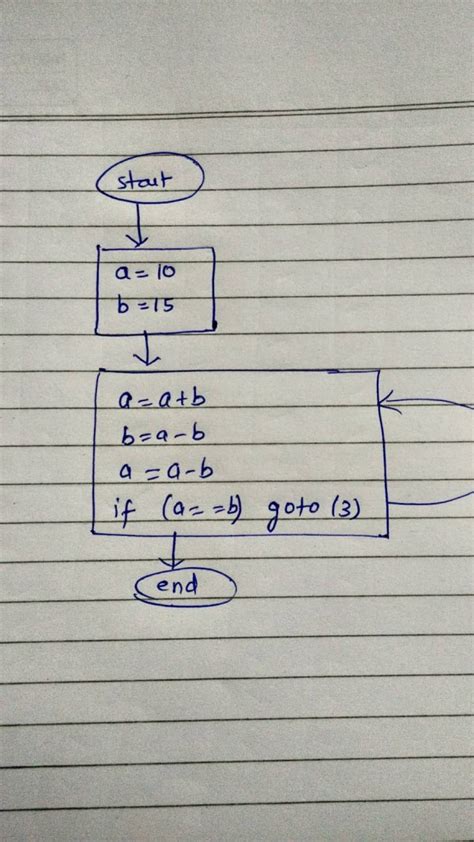 start
a = 10
b = 15
a = a + b
b = a - b
a = a - b
if (a = = b) goto (3)
end